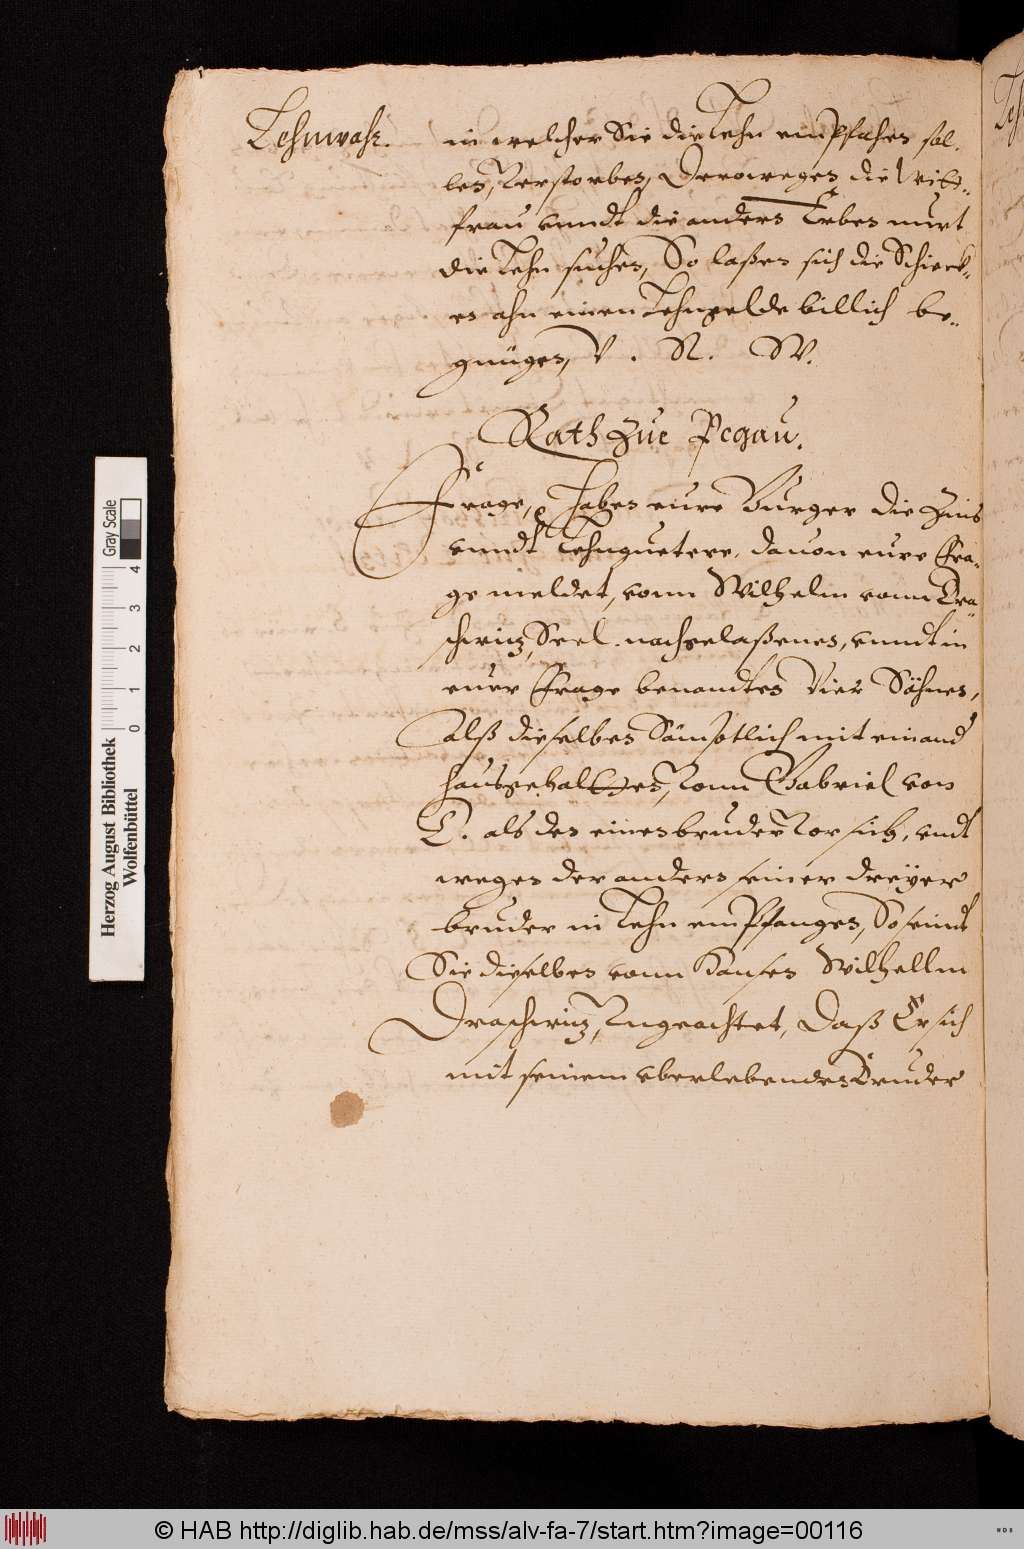 Lehnwahr.
in welcher Sie die Lehn empfahen sol-
len, Verstorben, Derowegen die Witt-
frau vnndt die andern Erben nurt
die Lehn suchen, So laßen sich die
en ahn einen Lehngelde billich be-
gnügen, V. R. W.
Rath zue Pegau.
Frage, Haben eure Burger die Zins
vnndt Lehnguetere, dauon eure Fra-
ge meldet, vonn Wilhelm vonn Dra-
schwiz, Seel. nachgelaßenen, vnndt in
euer Frage benandten Vier Söhnen,
alß dieselben Sämbtlich mit einand
hausgehaltten, Vonn Gabriel von
D. als den einen bruder Vor sich, vndt
wegen der andern seiner dreyer
bruder in Lehn empfangen, So seindt
Sie dieselben vonn Hansen Wilhellm
Draschwiz, Vngeachtet, Daß Er sich
mit seinem vberlebenden Bruder
Gray Scale
0 1 2 3 4
Herzog August Bibliothek
Wolfenbüttel
© HAB http://diglib.hab.de/mss/alv-fa-7/start.htm?image=00116